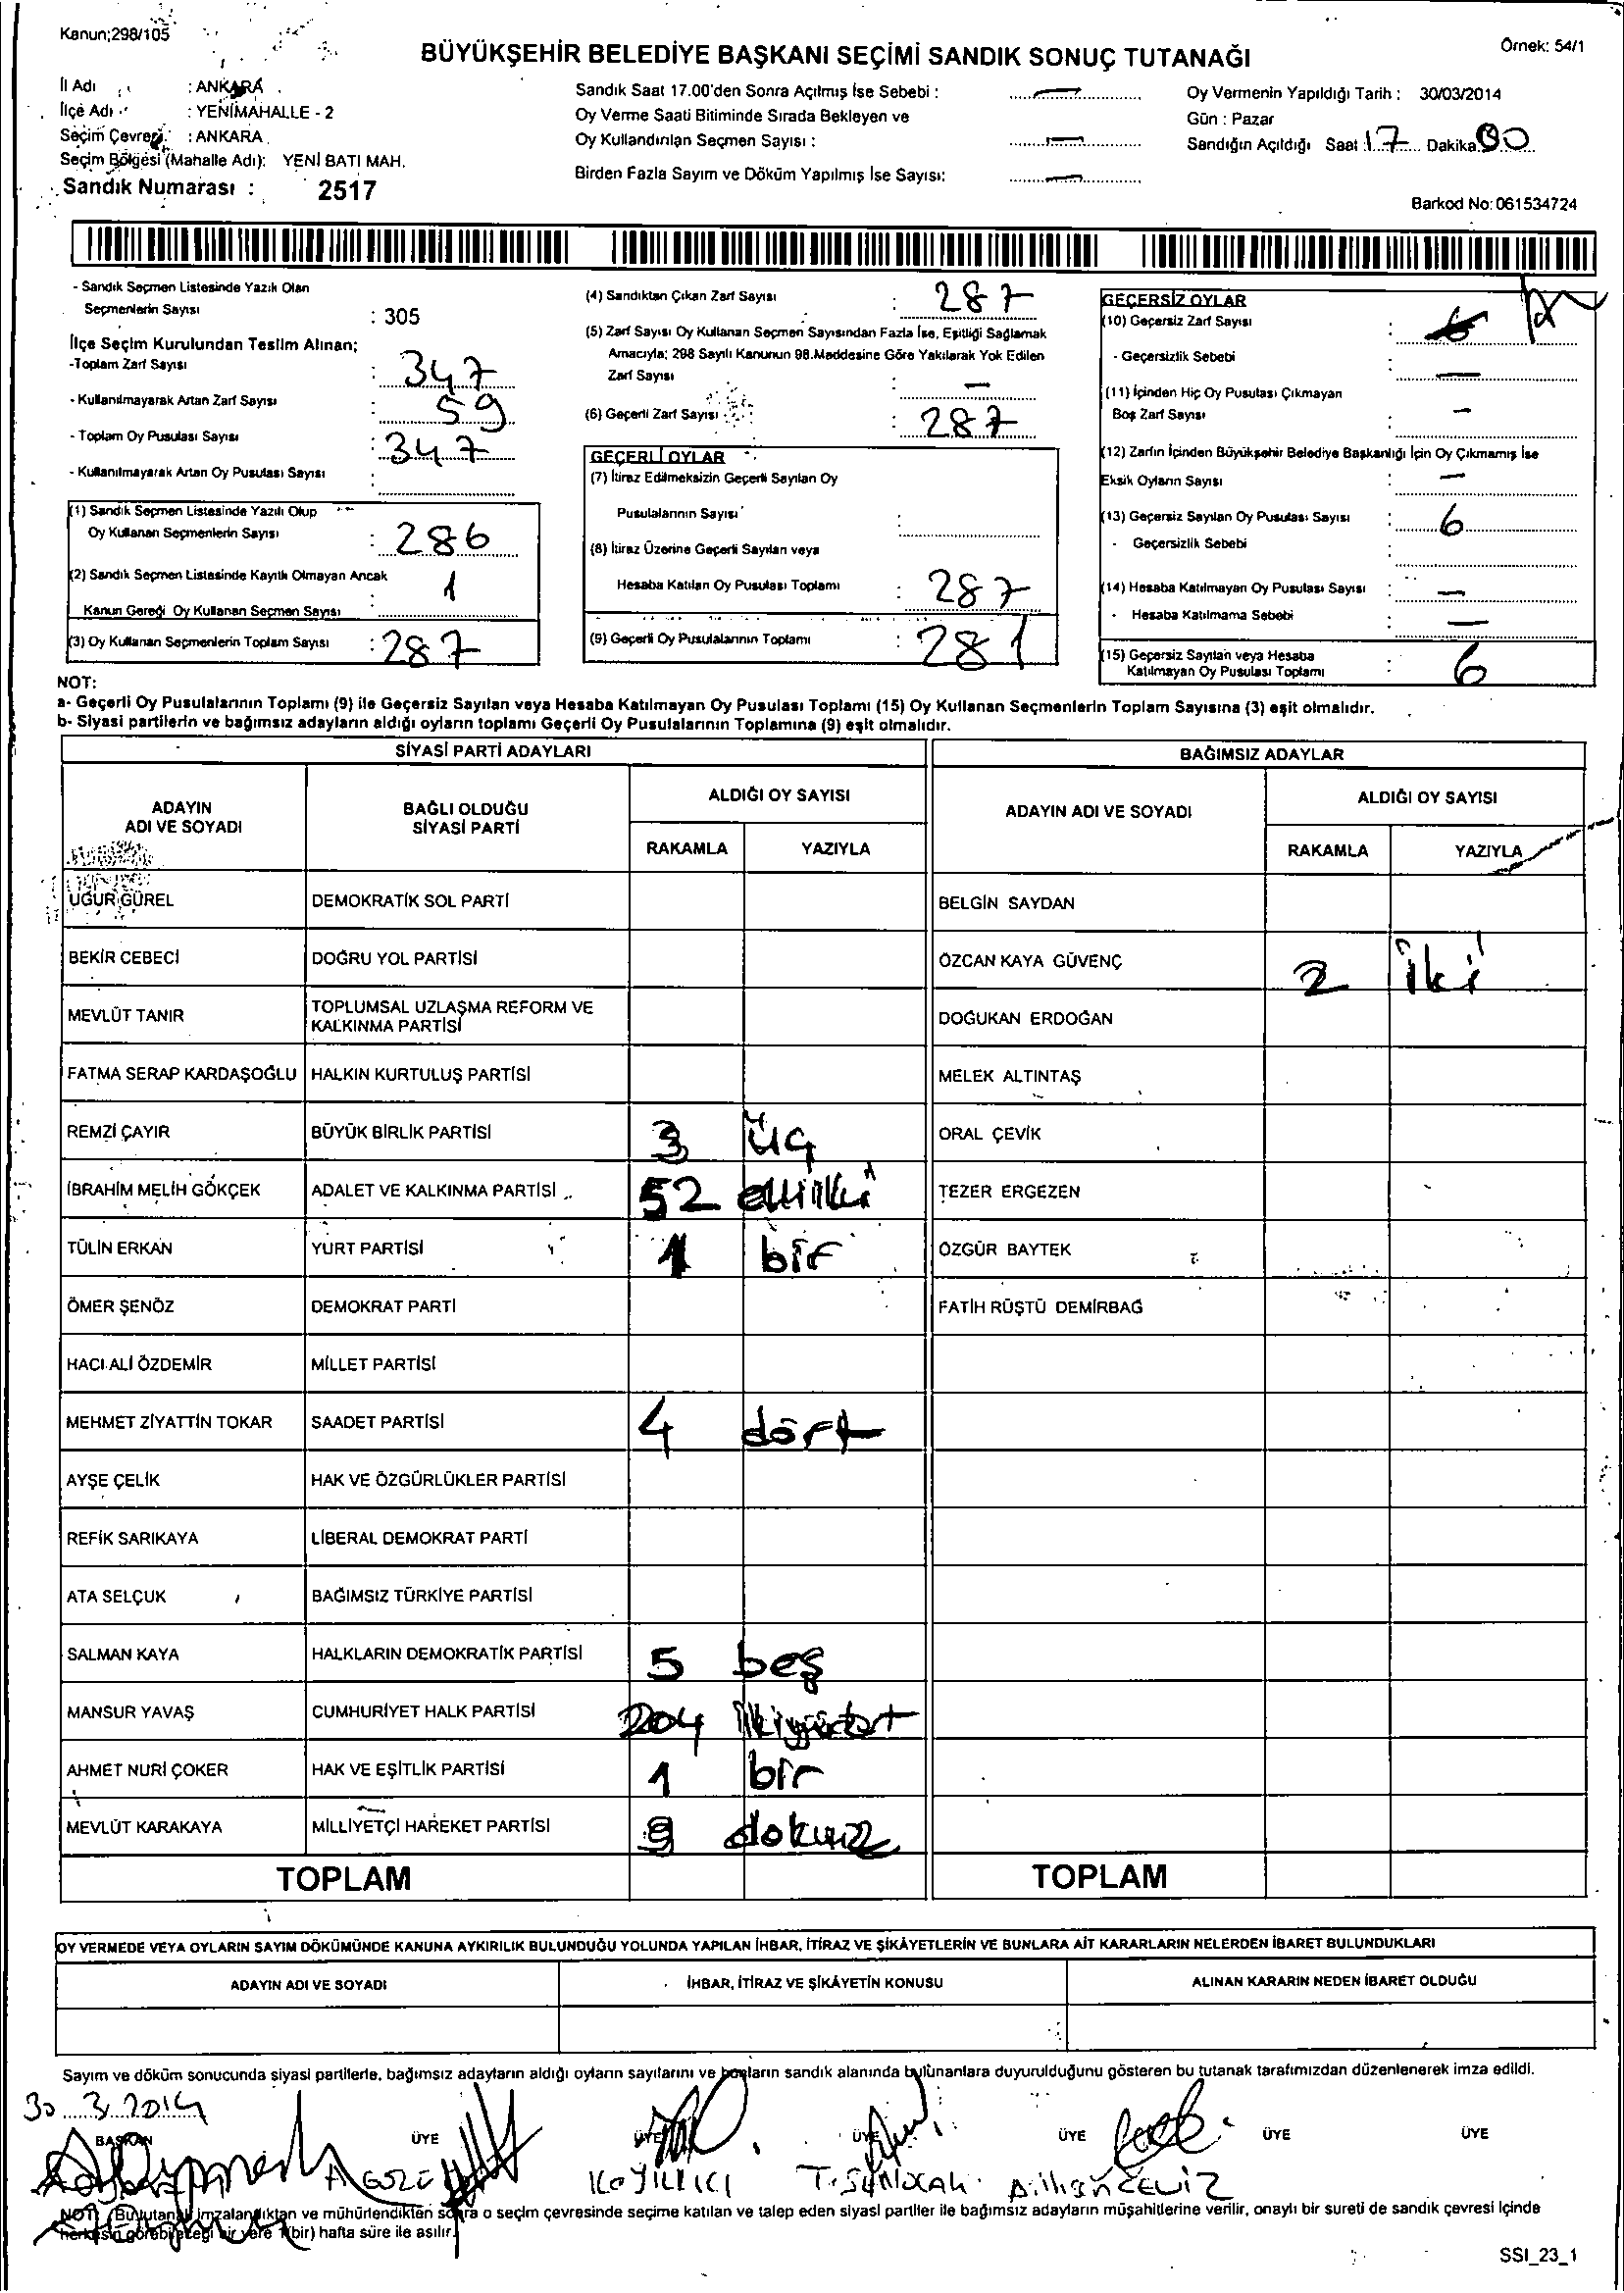 Kanun;298/105
Örnek: 54/1
BÜYÜKŞEHİR BELEDİYE BAŞKANI SEÇİMİ SANDIK SONUÇ TUTANAĞI
İl Adı : ANKARA
İlçe Adı : YENİMAHALLE - 2
Seçim Çevresi : ANKARA
Seçim Bölgesi (Mahalle Adı): YENİ BATI MAH.
Sandık Numarası : 2517
Sandık Saat 17.00'den Sonra Açılmış İse Sebebi : —
Oy Verme Saati Bitiminde Sırada Bekleyen ve
Oy Kullandırılan Seçmen Sayısı : —
Birden Fazla Sayım ve Döküm Yapılmış İse Sayısı: —
Oy Vermenin Yapıldığı Tarih : 30/03/2014
Gün : Pazar
Sandığın Açıldığı Saat 17 Dakika 00
Barkod No: 061534724
- Sandık Seçmen Listesinde Yazılı Olan
Seçmenlerin Sayısı : 305
İlçe Seçim Kurulundan Teslim Alınan;
-Toplam Zarf Sayısı : 347
- Kullanılmayarak Artan Zarf Sayısı : 59
- Toplam Oy Pusulası Sayısı : 347
- Kullanılmayarak Artan Oy Pusulası Sayısı :
(1) Sandık Seçmen Listesinde Yazılı Olup
Oy Kullanan Seçmenlerin Sayısı : 286
(2) Sandık Seçmen Listesinde Kayıtlı Olmayan Ancak
Kanun Gereği Oy Kullanan Seçmen Sayısı : 1
(3) Oy Kullanan Seçmenlerin Toplam Sayısı : 287
(4) Sandıktan Çıkan Zarf Sayısı : 287
(5) Zarf Sayısı Oy Kullanan Seçmen Sayısından Fazla İse, Eşitliği Sağlamak
Amacıyla; 298 Sayılı Kanunun 98.Maddesine Göre Yakılarak Yok Edilen
Zarf Sayısı : —
(6) Geçerli Zarf Sayısı : 287
GEÇERLİ OYLAR
(7) İtiraz Edilmeksizin Geçerli Sayılan Oy
Pusulalarının Sayısı :
(8) İtiraz Üzerine Geçerli Sayılan veya
Hesaba Katılan Oy Pusulası Toplamı : 287
(9) Geçerli Oy Pusulalarının Toplamı : 281
GEÇERSİZ OYLAR
(10) Geçersiz Zarf Sayısı : 6
- Geçersizlik Sebebi : —
(11) İçinden Hiç Oy Pusulası Çıkmayan
Boş Zarf Sayısı : —
(12) Zarfın İçinden Büyükşehir Belediye Başkanlığı İçin Oy Çıkmamış İse
Eksik Oyların Sayısı : —
(13) Geçersiz Sayılan Oy Pusulası Sayısı : 6
- Geçersizlik Sebebi :
(14) Hesaba Katılmayan Oy Pusulası Sayısı : —
- Hesaba Katılmama Sebebi : —
(15) Geçersiz Sayılan veya Hesaba
Katılmayan Oy Pusulası Toplamı : 6
NOT:
a- Geçerli Oy Pusulalarının Toplamı (9) ile Geçersiz Sayılan veya Hesaba Katılmayan Oy Pusulası Toplamı (15) Oy Kullanan Seçmenlerin Toplam Sayısına (3) eşit olmalıdır.
b- Siyasi partilerin ve bağımsız adayların aldığı oyların toplamı Geçerli Oy Pusulalarının Toplamına (9) eşit olmalıdır.
SİYASİ PARTİ ADAYLARI
BAĞIMSIZ ADAYLAR
ADAYIN ADI VE SOYADI
BAĞLI OLDUĞU SİYASİ PARTİ
ALDIĞI OY SAYISI
RAKAMLA YAZIYLA
ADAYIN ADI VE SOYADI
ALDIĞI OY SAYISI
RAKAMLA YAZIYLA
UĞUR GÜREL DEMOKRATİK SOL PARTİ BELGİN SAYDAN
BEKİR CEBECİ DOĞRU YOL PARTİSİ ÖZCAN KAYA GÜVENÇ 2 iki
MEVLÜT TANIR TOPLUMSAL UZLAŞMA REFORM VE KALKINMA PARTİSİ DOĞUKAN ERDOĞAN
FATMA SERAP KARDAŞOĞLU HALKIN KURTULUŞ PARTİSİ MELEK ALTINTAŞ
REMZİ ÇAYIR BÜYÜK BİRLİK PARTİSİ 3 üç ORAL ÇEVİK
İBRAHİM MELİH GÖKÇEK ADALET VE KALKINMA PARTİSİ 52 elliiki TEZER ERGEZEN
TÜLİN ERKAN YURT PARTİSİ 1 bir ÖZGÜR BAYTEK
ÖMER ŞENÖZ DEMOKRAT PARTİ FATİH RÜŞTÜ DEMİRBAĞ
HACI ALİ ÖZDEMİR MİLLET PARTİSİ
MEHMET ZİYATTİN TOKAR SAADET PARTİSİ 4 dört
AYŞE ÇELİK HAK VE ÖZGÜRLÜKLER PARTİSİ
REFİK SARIKAYA LİBERAL DEMOKRAT PARTİ
ATA SELÇUK BAĞIMSIZ TÜRKİYE PARTİSİ
SALMAN KAYA HALKLARIN DEMOKRATİK PARTİSİ 5 beş
MANSUR YAVAŞ CUMHURİYET HALK PARTİSİ 204
AHMET NURİ ÇOKER HAK VE EŞİTLİK PARTİSİ 1 bir
MEVLÜT KARAKAYA MİLLİYETÇİ HAREKET PARTİSİ 9 dokuz
TOPLAM TOPLAM
OY VERMEDE VEYA OYLARIN SAYIM DÖKÜMÜNDE KANUNA AYKIRILIK BULUNDUĞU YOLUNDA YAPILAN İHBAR, İTİRAZ VE ŞİKÂYETLERİN VE BUNLARA AİT KARARLARIN NELERDEN İBARET BULUNDUKLARI
ADAYIN ADI VE SOYADI İHBAR, İTİRAZ VE ŞİKÂYETİN KONUSU ALINAN KARARIN NEDEN İBARET OLDUĞU
Sayım ve döküm sonucunda siyasi partilerle, bağımsız adayların aldığı oyların sayılarını ve bunların sandık alanında bulunanlara duyurulduğunu gösteren bu tutanak tarafımızdan düzenlenerek imza edildi.
30 3 2014
BAŞKAN ÜYE ÜYE ÜYE ÜYE ÜYE ÜYE
NOT: (Bu tutanak imzalandıktan ve mühürlendikten sonra o seçim çevresinde seçime katılan ve talep eden siyasi partiler ile bağımsız adayların müşahitlerine verilir, onaylı bir sureti de sandık çevresi içinde
herkesin görebileceği bir yere 1(bir) hafta süre ile asılır.
SSI_23_1